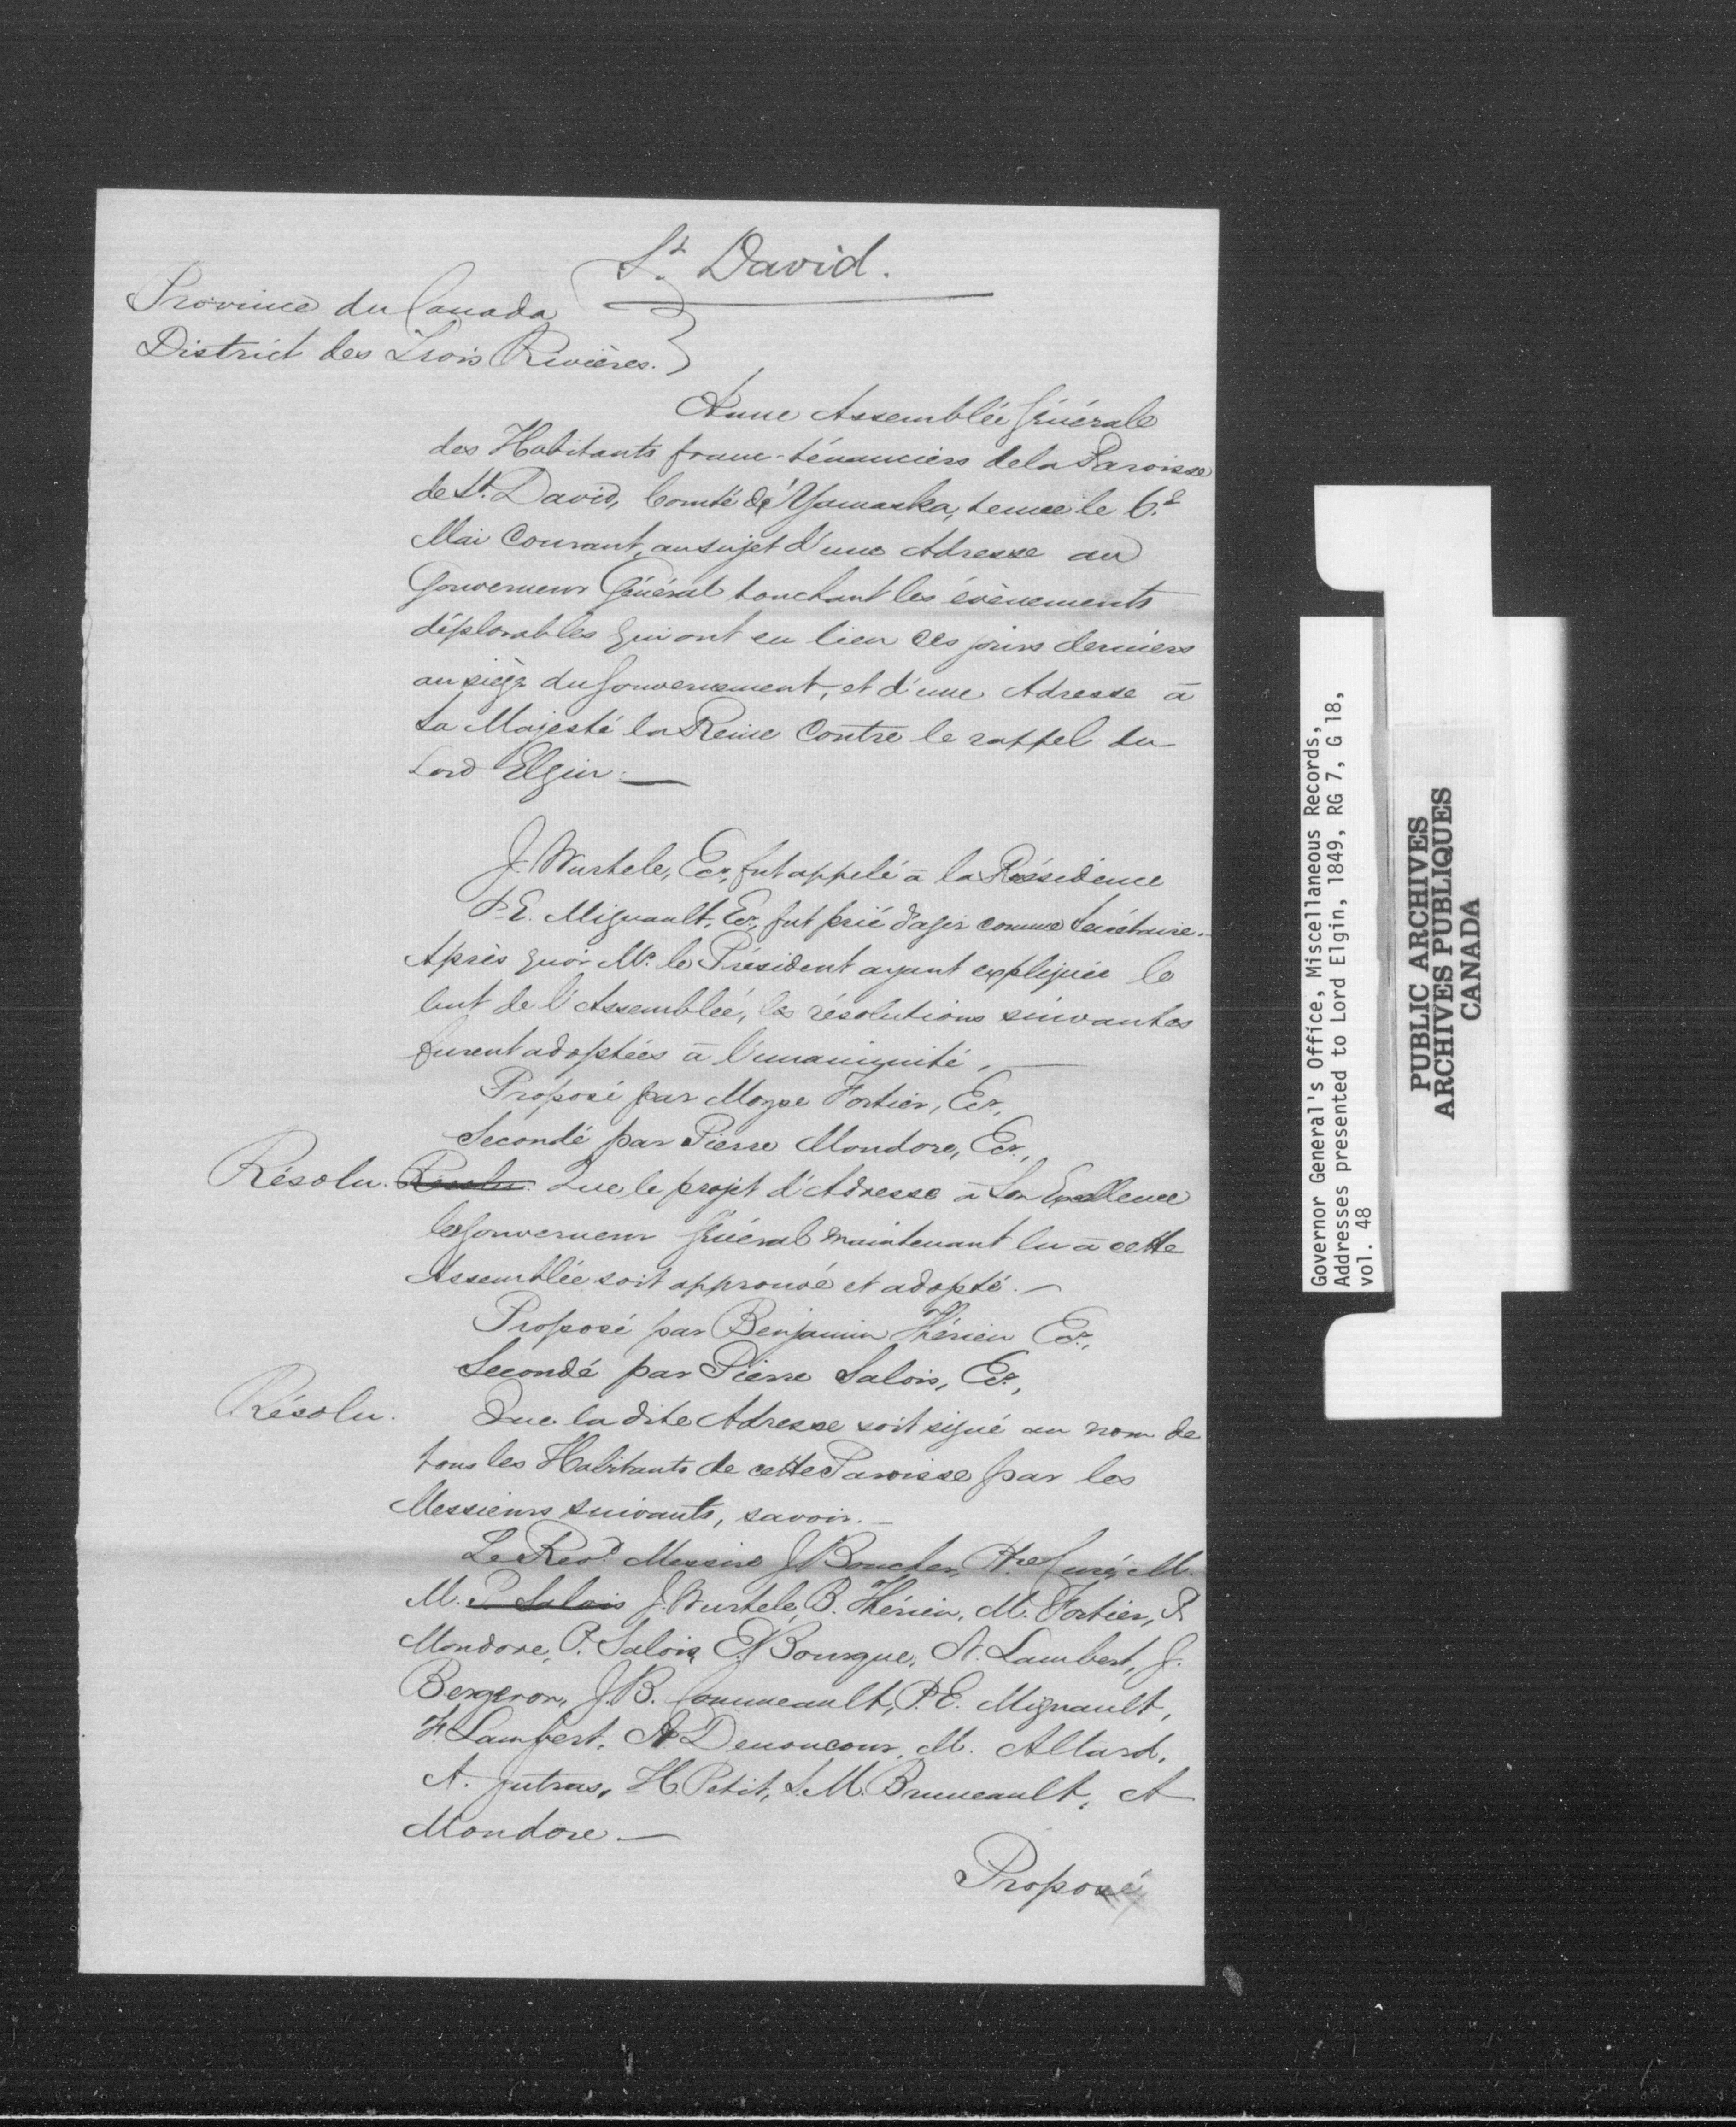 St. David.
Province du Canada
District des Trois Rivières.
A une Assemblée Générale
des Habitants franc-ténanciers de la Paroisse
de St. David, Comté de Yamaska, tenue le 6.e
Mai Courant, au sujet d'une Adresse au
Gouverneur Général touchant les évènements
déplorables qui ont eu lieu ces jours derniers
au siège du Gouvernement, et d'une Adresse à
Sa Majesté la Reine Contre le rappel du
Lord Elgin.—
J. Wurtele, Ecr., fut appelé à la Présidence
P.E. Mignault, Ecr., fut prié d'agir comme Secrétaire.
Après quoi Mr. le Président ayant expliquée le
but de l'Assemblée, les résolutions suivantes
furent adoptées à l'unanimité.—
Proposé par Moyse Fortier, Ecr.,
Secondé par Pierre Mondore, Ecr.,
Résolu. Résolu. Que le projet d'Adresse à Son Excellence
le Gouverneur Général maintenant lu à cette
Assemblée soit approuvé et adopté.—
Proposé par Benjamin Thérien Ecr.,
Secondé par Pierre Salois, Ecr.,
Résolu. Que la dite Adresse soit signé au nom de
tous les Habitants de cette Paroisse par les
Messieurs suivants, savoir.—
Le Revd. Messire J. Boucher, Ptre Curé, M.
M. P. Salois J. Wurtele, B. Thérien, M. Fortier, P.
Mondore, P. Salois, E. Bourque, A. Lambert, J.
Bergeron, J.B. Commeault, P.E. Mignault,
F. Lambert, A. Denoncour, M. Allard,
A. Jutras, H. Petit, S.M. Bruneault, A
Mondore.—
Proposé
Governor General's Office, Miscellaneous Records,
Addresses presented to Lord Elgin, 1849, RG 7, G 18,
vol. 48
PUBLIC ARCHIVES
ARCHIVES PUBLIQUES
CANADA